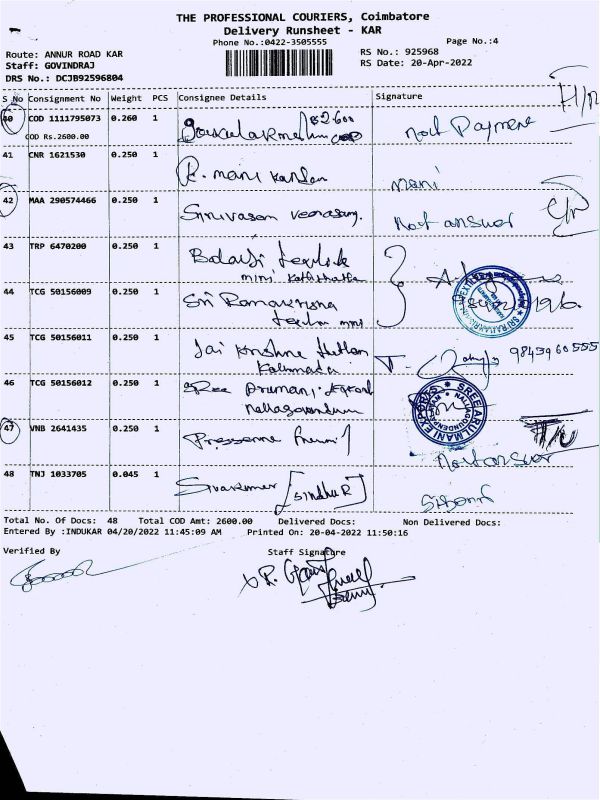 THE PROFESSIONAL COURIERS, Coimbatore
Delivery Runsheet - KAR
Phone No.:0422-3505555
Page No.:4
Route: ANNUR ROAD KAR
RS No.: 925968
Staff: GOVINDRAJ
RS Date: 20-Apr-2022
DRS No.: DCJB92596804
S No Consignment No Weight PCS Consignee Details Signature
40 COD 1111795073 0.260 1 Not Payment
COD Rs.2600.00
41 CNR 1621530 0.250 1 K. mani kandan mani
42 MAA 290574466 0.250 1 Srinivasan Not answer
43 TRP 6470200 0.250 1 Balaji
mini
44 TCG 50156009 0.250 1 Sri Ramakrishna
45 TCG 50156011 0.250 1 Jai Krishna 98439 60555
46 TCG 50156012 0.250 1 Sree
SREE ARUL MANI EXPORTS
47 VNB 2641435 0.250 1 Not answer
48 TNJ 1033705 0.045 1 Sivakumar [SINDHU R]
Total No. Of Docs: 48 Total COD Amt: 2600.00 Delivered Docs: Non Delivered Docs:
Entered By :INDUKAR 04/20/2022 11:45:09 AM Printed On: 20-04-2022 11:50:16
Verified By Staff Signature